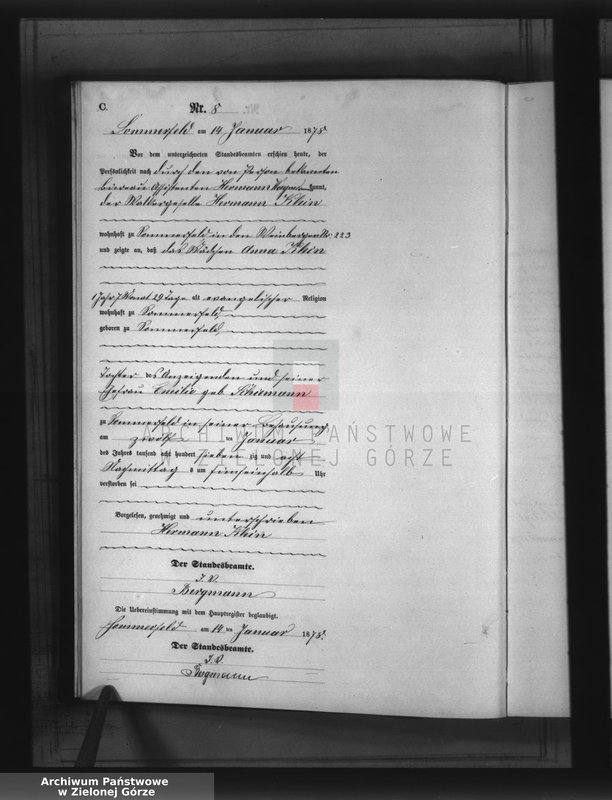 C.
Nr. 8
Sommerfeld am 14 Januar 1878
Vor dem unterzeichneten Standesbeamten erschien heute, der
Persönlichkeit nach durch den von Person bekannten
Büreau Assistenten Hermann kannt,
der Walkergeselle Hermann Klein
wohnhaft zu Sommerfeld in den Weinbergen Nr. 223
und zeigte an, daß das Mädchen Anna Klein
1 Jahr 7 Monat 29 Tage alt evangelischer Religion
wohnhaft zu Sommerfeld,
geboren zu Sommerfeld,
Tochter des Anzeigenden und seiner
Ehefrau Emilie geb.
zu Sommerfeld in seiner Behausung
am zwölf ten Januar
des Jahres tausend acht hundert sieben zig und acht
Nachmittag s um fünfeinhalb Uhr
verstorben sei
Vorgelesen, genehmigt und unterschrieben
Hermann Klein
Der Standesbeamte.
I. V.
Bergmann
Die Uebereinstimmung mit dem Hauptregister beglaubigt.
Sommerfeld am 14 ten Januar 1878.
Der Standesbeamte.
I. V.
Bergmann
ARCHIWUM PAŃSTWOWE
W ZIELONEJ GÓRZE
Archiwum Państwowe
w Zielonej Górze